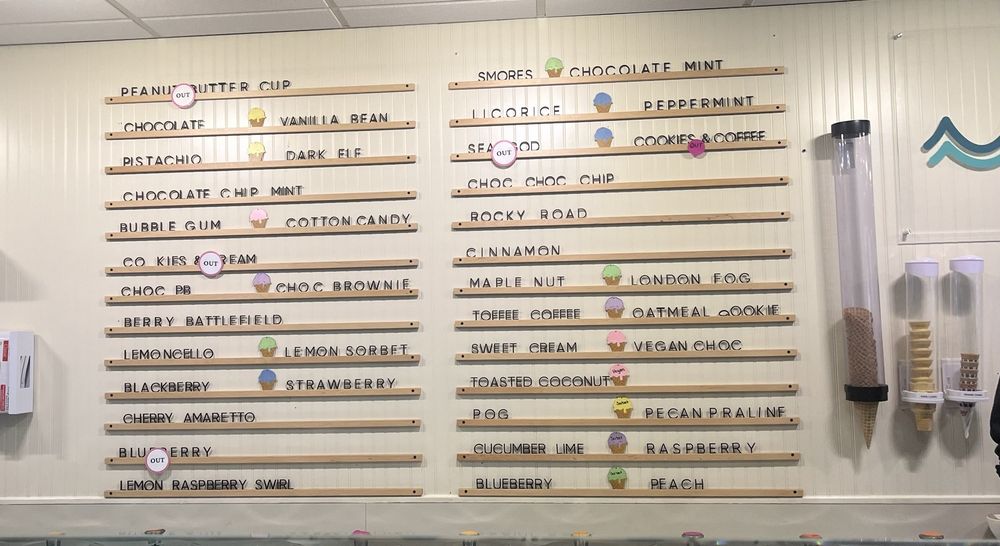 PEANUT BUTTER CUP
OUT
CHOCOLATE VANILLA BEAN
PISTACHIO DARK ELF
CHOCOLATE CHIP MINT
BUBBLE GUM COTTON CANDY
CO KIES & REAM
OUT
CHOC PB CHOC BROWNIE
BERRY BATTLEFIELD
LEMONCELLO LEMON SORBET
BLACKBERRY STRAWBERRY
CHERRY AMARETTO
BLUEBERRY
OUT
LEMON RASPBERRY SWIRL
SMORES CHOCOLATE MINT
LICORICE PEPPERMINT
SEA OD COOKIES & COFFEE
OUT OUT
CHOC CHOC CHIP
ROCKY ROAD
CINNAMON
MAPLE NUT LONDON FOG
TOFFEE COFFEE OATMEAL COOKIE
SWEET CREAM VEGAN CHOC
TOASTED COCONUT Vegan
POG Sorbet PECAN PRALINE
CUCUMBER LIME Sorbet RASPBERRY
BLUEBERRY Sorbet PEACH